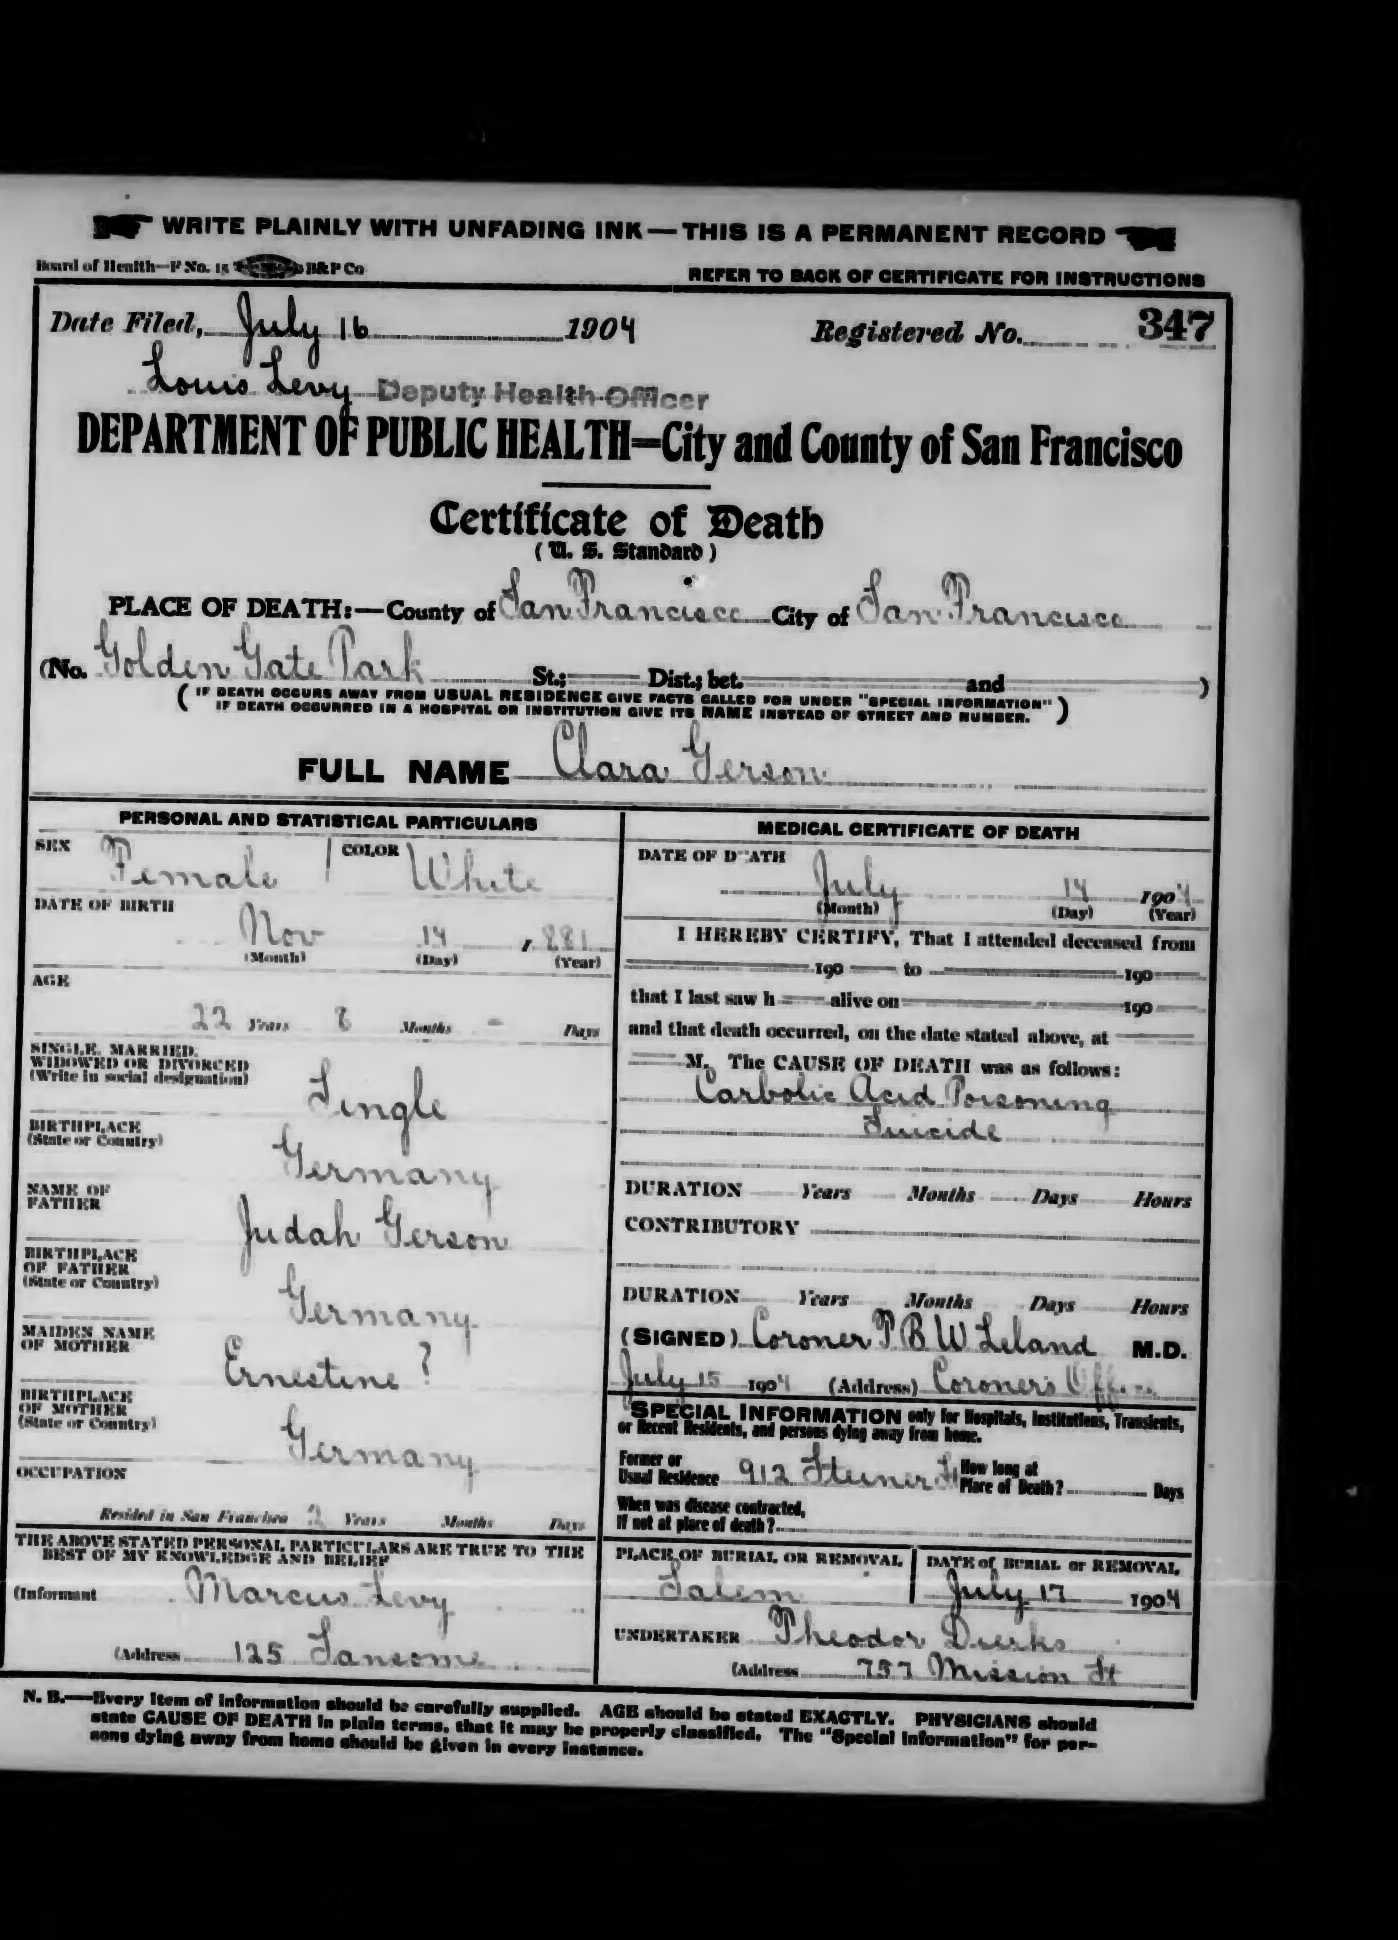 WRITE PLAINLY WITH UNFADING INK—THIS IS A PERMANENT RECORD
Board of Health—F No. 15 B&P Co
REFER TO BACK OF CERTIFICATE FOR INSTRUCTIONS
Date Filed, July 16 1904 Registered No. 347
Louis Levy Deputy Health Officer
DEPARTMENT OF PUBLIC HEALTH=City and County of San Francisco
Certificate of Death
( U. S. Standard )
PLACE OF DEATH:—County of San Francisco City of San Francisco
(No. Golden Gate Park St.; Dist.; bet. and )
( IF DEATH OCCURS AWAY FROM USUAL RESIDENCE GIVE FACTS CALLED FOR UNDER "SPECIAL INFORMATION"
IF DEATH OCCURRED IN A HOSPITAL OR INSTITUTION GIVE ITS NAME INSTEAD OF STREET AND NUMBER. )
FULL NAME Clara Gerson
PERSONAL AND STATISTICAL PARTICULARS
SEX Female COLOR White
DATE OF BIRTH
Nov 14 , 881
(Month) (Day) (Year)
AGE
22 Years 8 Months - Days
SINGLE, MARRIED,
WIDOWED OR DIVORCED
(Write in social designation)
Single
BIRTHPLACE
(State or Country)
Germany
NAME OF
FATHER
Judah Gerson
BIRTHPLACE
OF FATHER
(State or Country)
Germany
MAIDEN NAME
OF MOTHER
Ernestine ?
BIRTHPLACE
OF MOTHER
(State or Country)
Germany
OCCUPATION
Resided in San Francisco 2 Years Months Days
THE ABOVE STATED PERSONAL PARTICULARS ARE TRUE TO THE
BEST OF MY KNOWLEDGE AND BELIEF
(Informant Marcus Levy
(Address 125 Sansome
MEDICAL CERTIFICATE OF DEATH
DATE OF DEATH
July 14 1904
(Month) (Day) (Year)
I HEREBY CERTIFY, That I attended deceased from
190 to 190
that I last saw h alive on 190
and that death occurred, on the date stated above, at
M. The CAUSE OF DEATH was as follows:
Carbolic Acid Poisoning
Suicide
DURATION Years Months Days Hours
CONTRIBUTORY
DURATION Years Months Days Hours
(SIGNED) Coroner T B W Leland M.D.
July 15 1904 (Address) Coroner's Office
SPECIAL INFORMATION only for Hospitals, Institutions, Transients,
or Recent Residents, and persons dying away from home.
Former or
Usual Residence 912 Steiner St How long at
Place of Death? Days
When was disease contracted,
If not at place of death?
PLACE OF BURIAL OR REMOVAL DATE of BURIAL or REMOVAL
Salem July 17 1904
UNDERTAKER Theodor Dierks
(Address 757 Mission St
N. B.—Every item of information should be carefully supplied. AGE should be stated EXACTLY. PHYSICIANS should
state CAUSE OF DEATH in plain terms, that it may be properly classified. The "Special Information" for per-
sons dying away from home should be given in every instance.